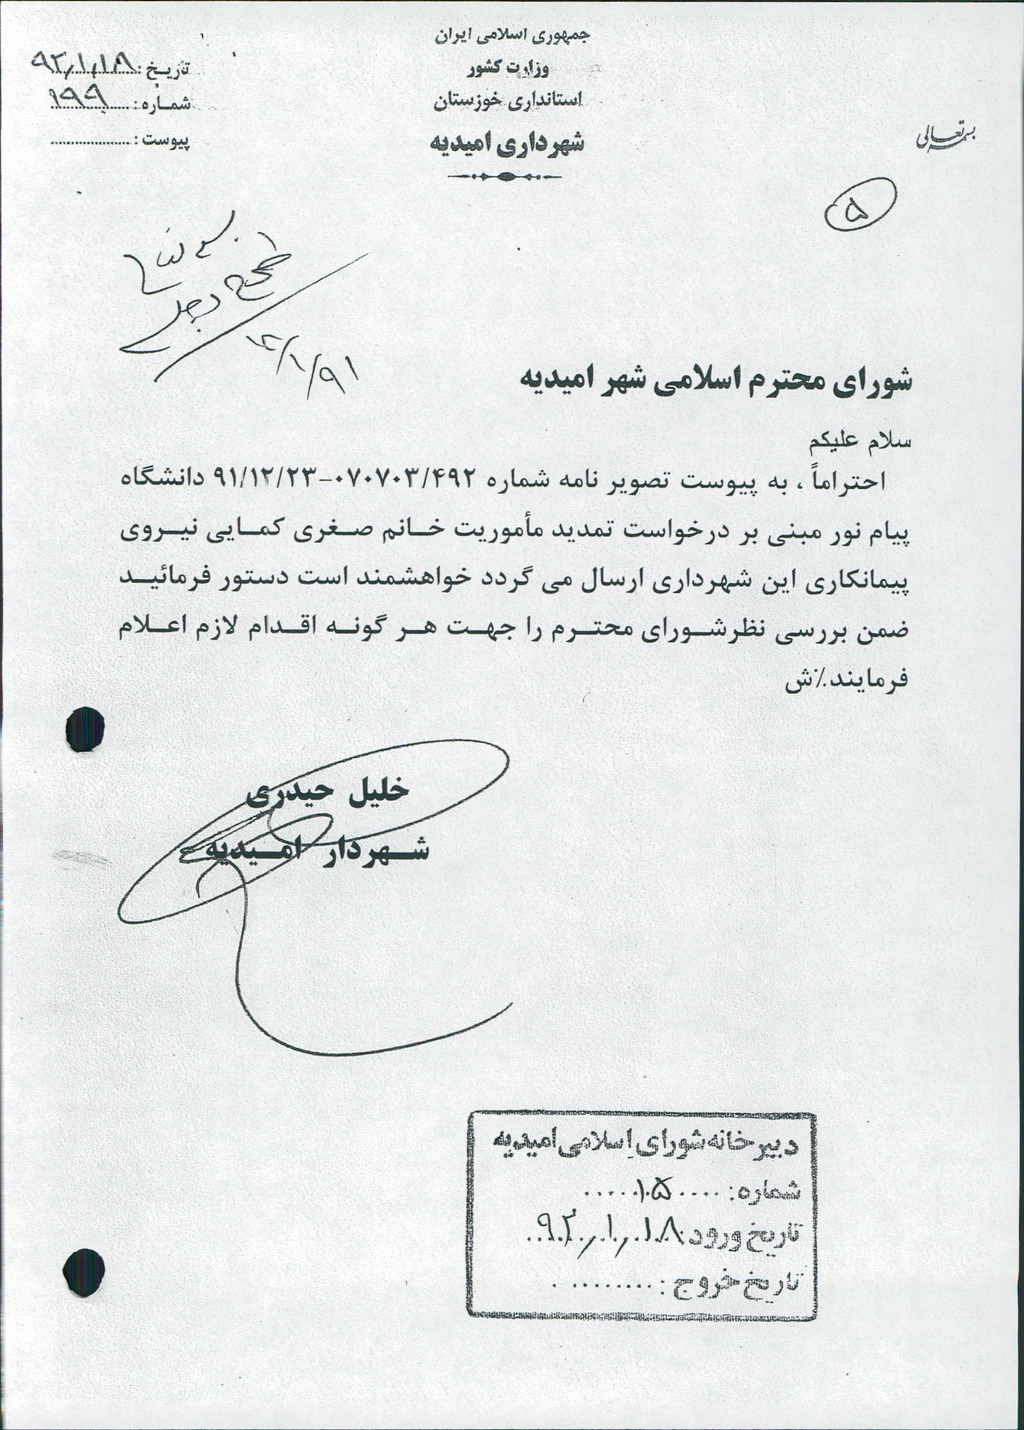 جمهوری اسلامی ایران
وزارت کشور
استانداری خوزستان
شهرداری امیدیه
بسمه تعالی
تاریخ: ۹۲/۱/۱۸
شماره: ۱۹۹
پیوست: ....................
۵
شورای محترم اسلامی شهر امیدیه
سلام علیکم
احتراماً ، به پیوست تصویر نامه شماره ۰۷۰۷۰۳/۴۹۲-۹۱/۱۲/۲۳ دانشگاه
پیام نور مبنی بر درخواست تمدید مأموریت خانم صغری کمایی نیروی
پیمانکاری این شهرداری ارسال می گردد خواهشمند است دستور فرمائید
ضمن بررسی نظرشورای محترم را جهت هر گونه اقدام لازم اعلام
فرمایند.٪ش
خلیل حیدری
شهردار امیدیه
دبیرخانه شورای اسلامی امیدیه
شماره: ۱۵
تاریخ ورود: ۹۲/۱/۱۸
تاریخ خروج: .........